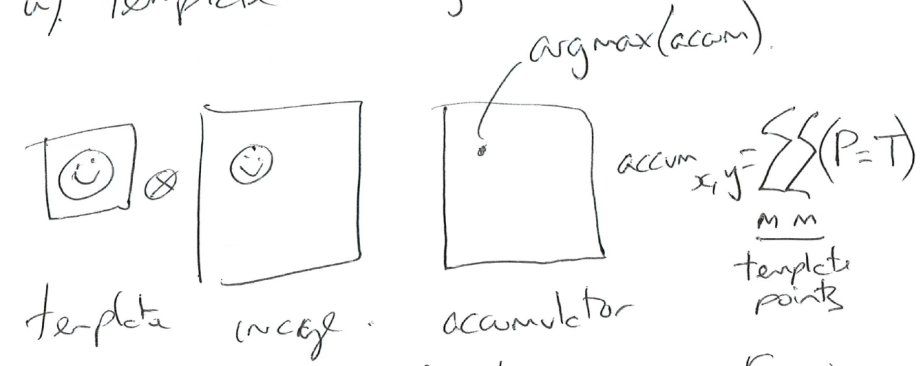 a). Template
argmax(accum).
⊗
accum x,y = ΣΣ(P=T)
m m
template
points
template image. accumulator